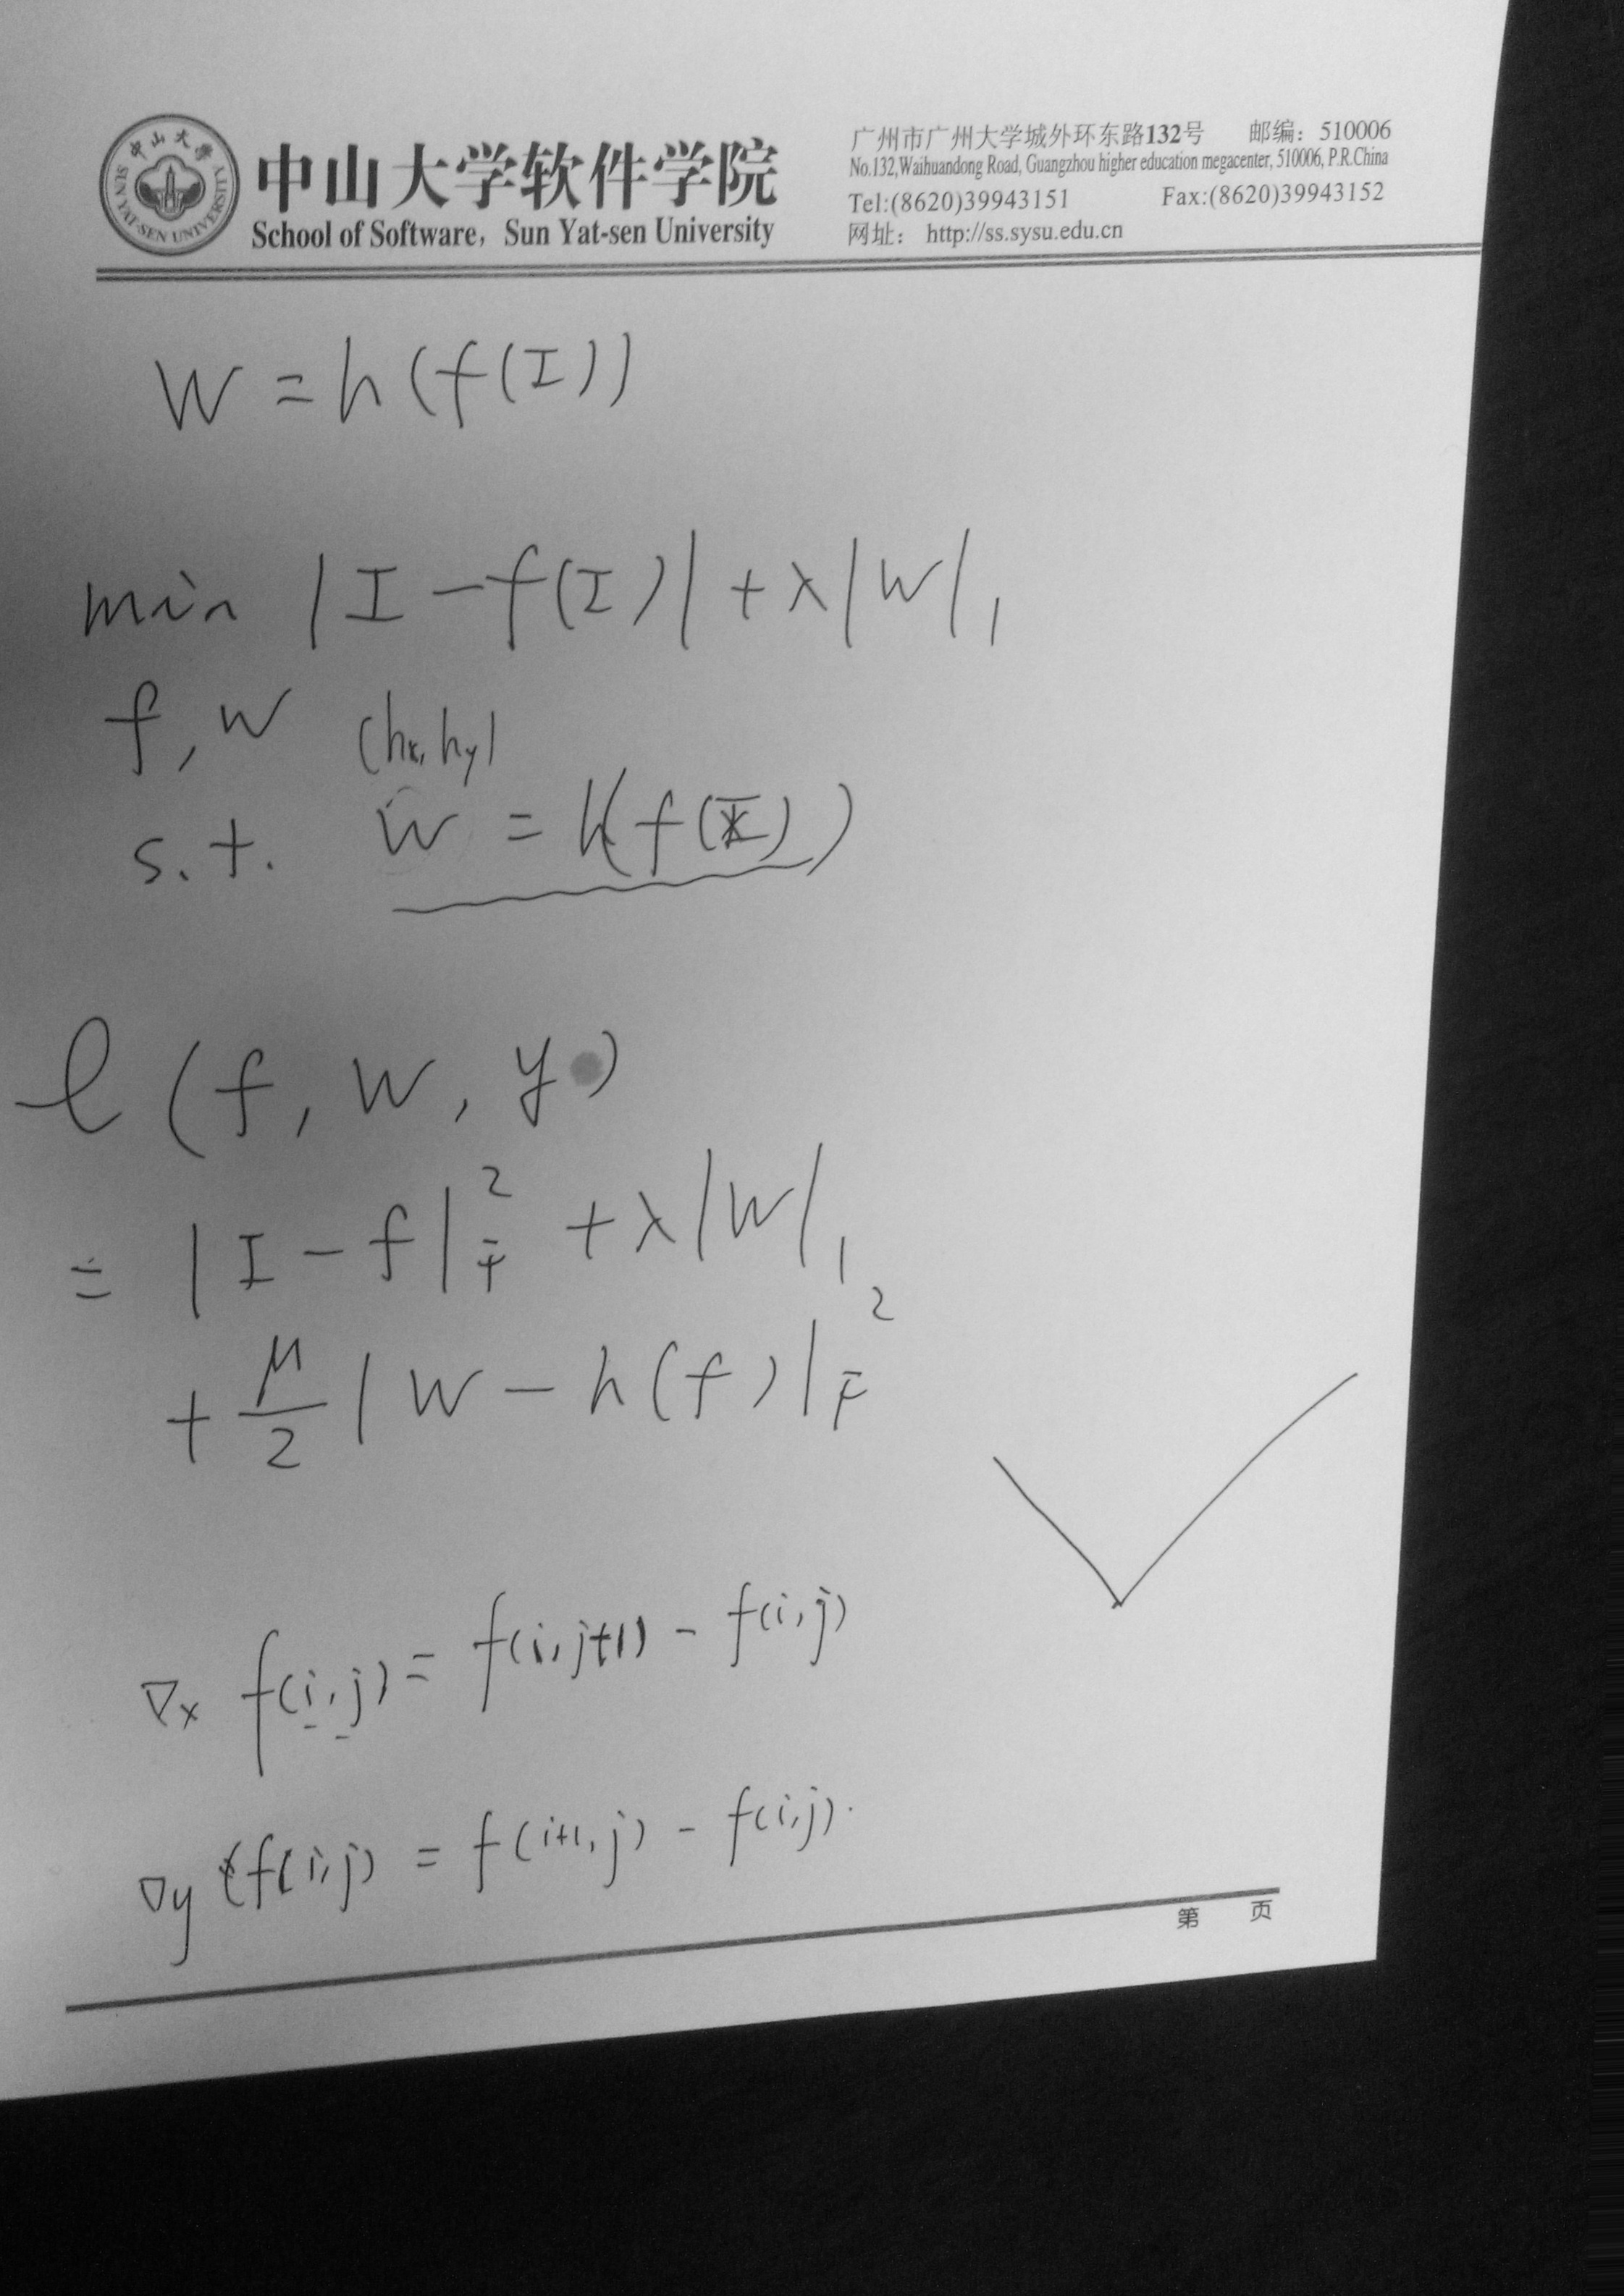 中山大学
SUN YAT-SEN UNIVERSITY
中山大学软件学院
School of Software, Sun Yat-sen University
广州市广州大学城外环东路132号 邮编：510006
No.132,Waihuandong Road, Guangzhou higher education megacenter, 510006, P.R.China
Tel:(8620)39943151 Fax:(8620)39943152
网址： http://ss.sysu.edu.cn
W = h(f(I))
min |I - f(I)| + λ|W|₁
f, w (hx, hy)
s.t. W = h(f(I))
ℓ(f, W, y)
= |I - f|²_F + λ|W|₁
+ μ/2 |W - h(f)|²_F
∇x f(i,j) = f(i,j+1) - f(i,j)
∇y (f(i,j) = f(i+1,j) - f(i,j).
第 页